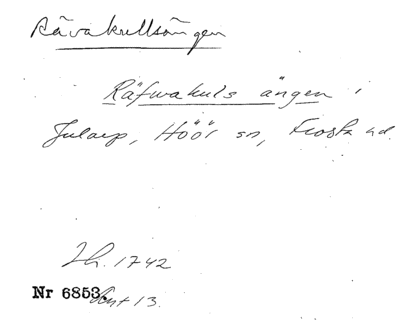 Rävakullsängen
Räfwakuls ängen i
Jularp, Höör sn, Frosta hd.
Lh. 1742
Nr 6853. Avt 13.